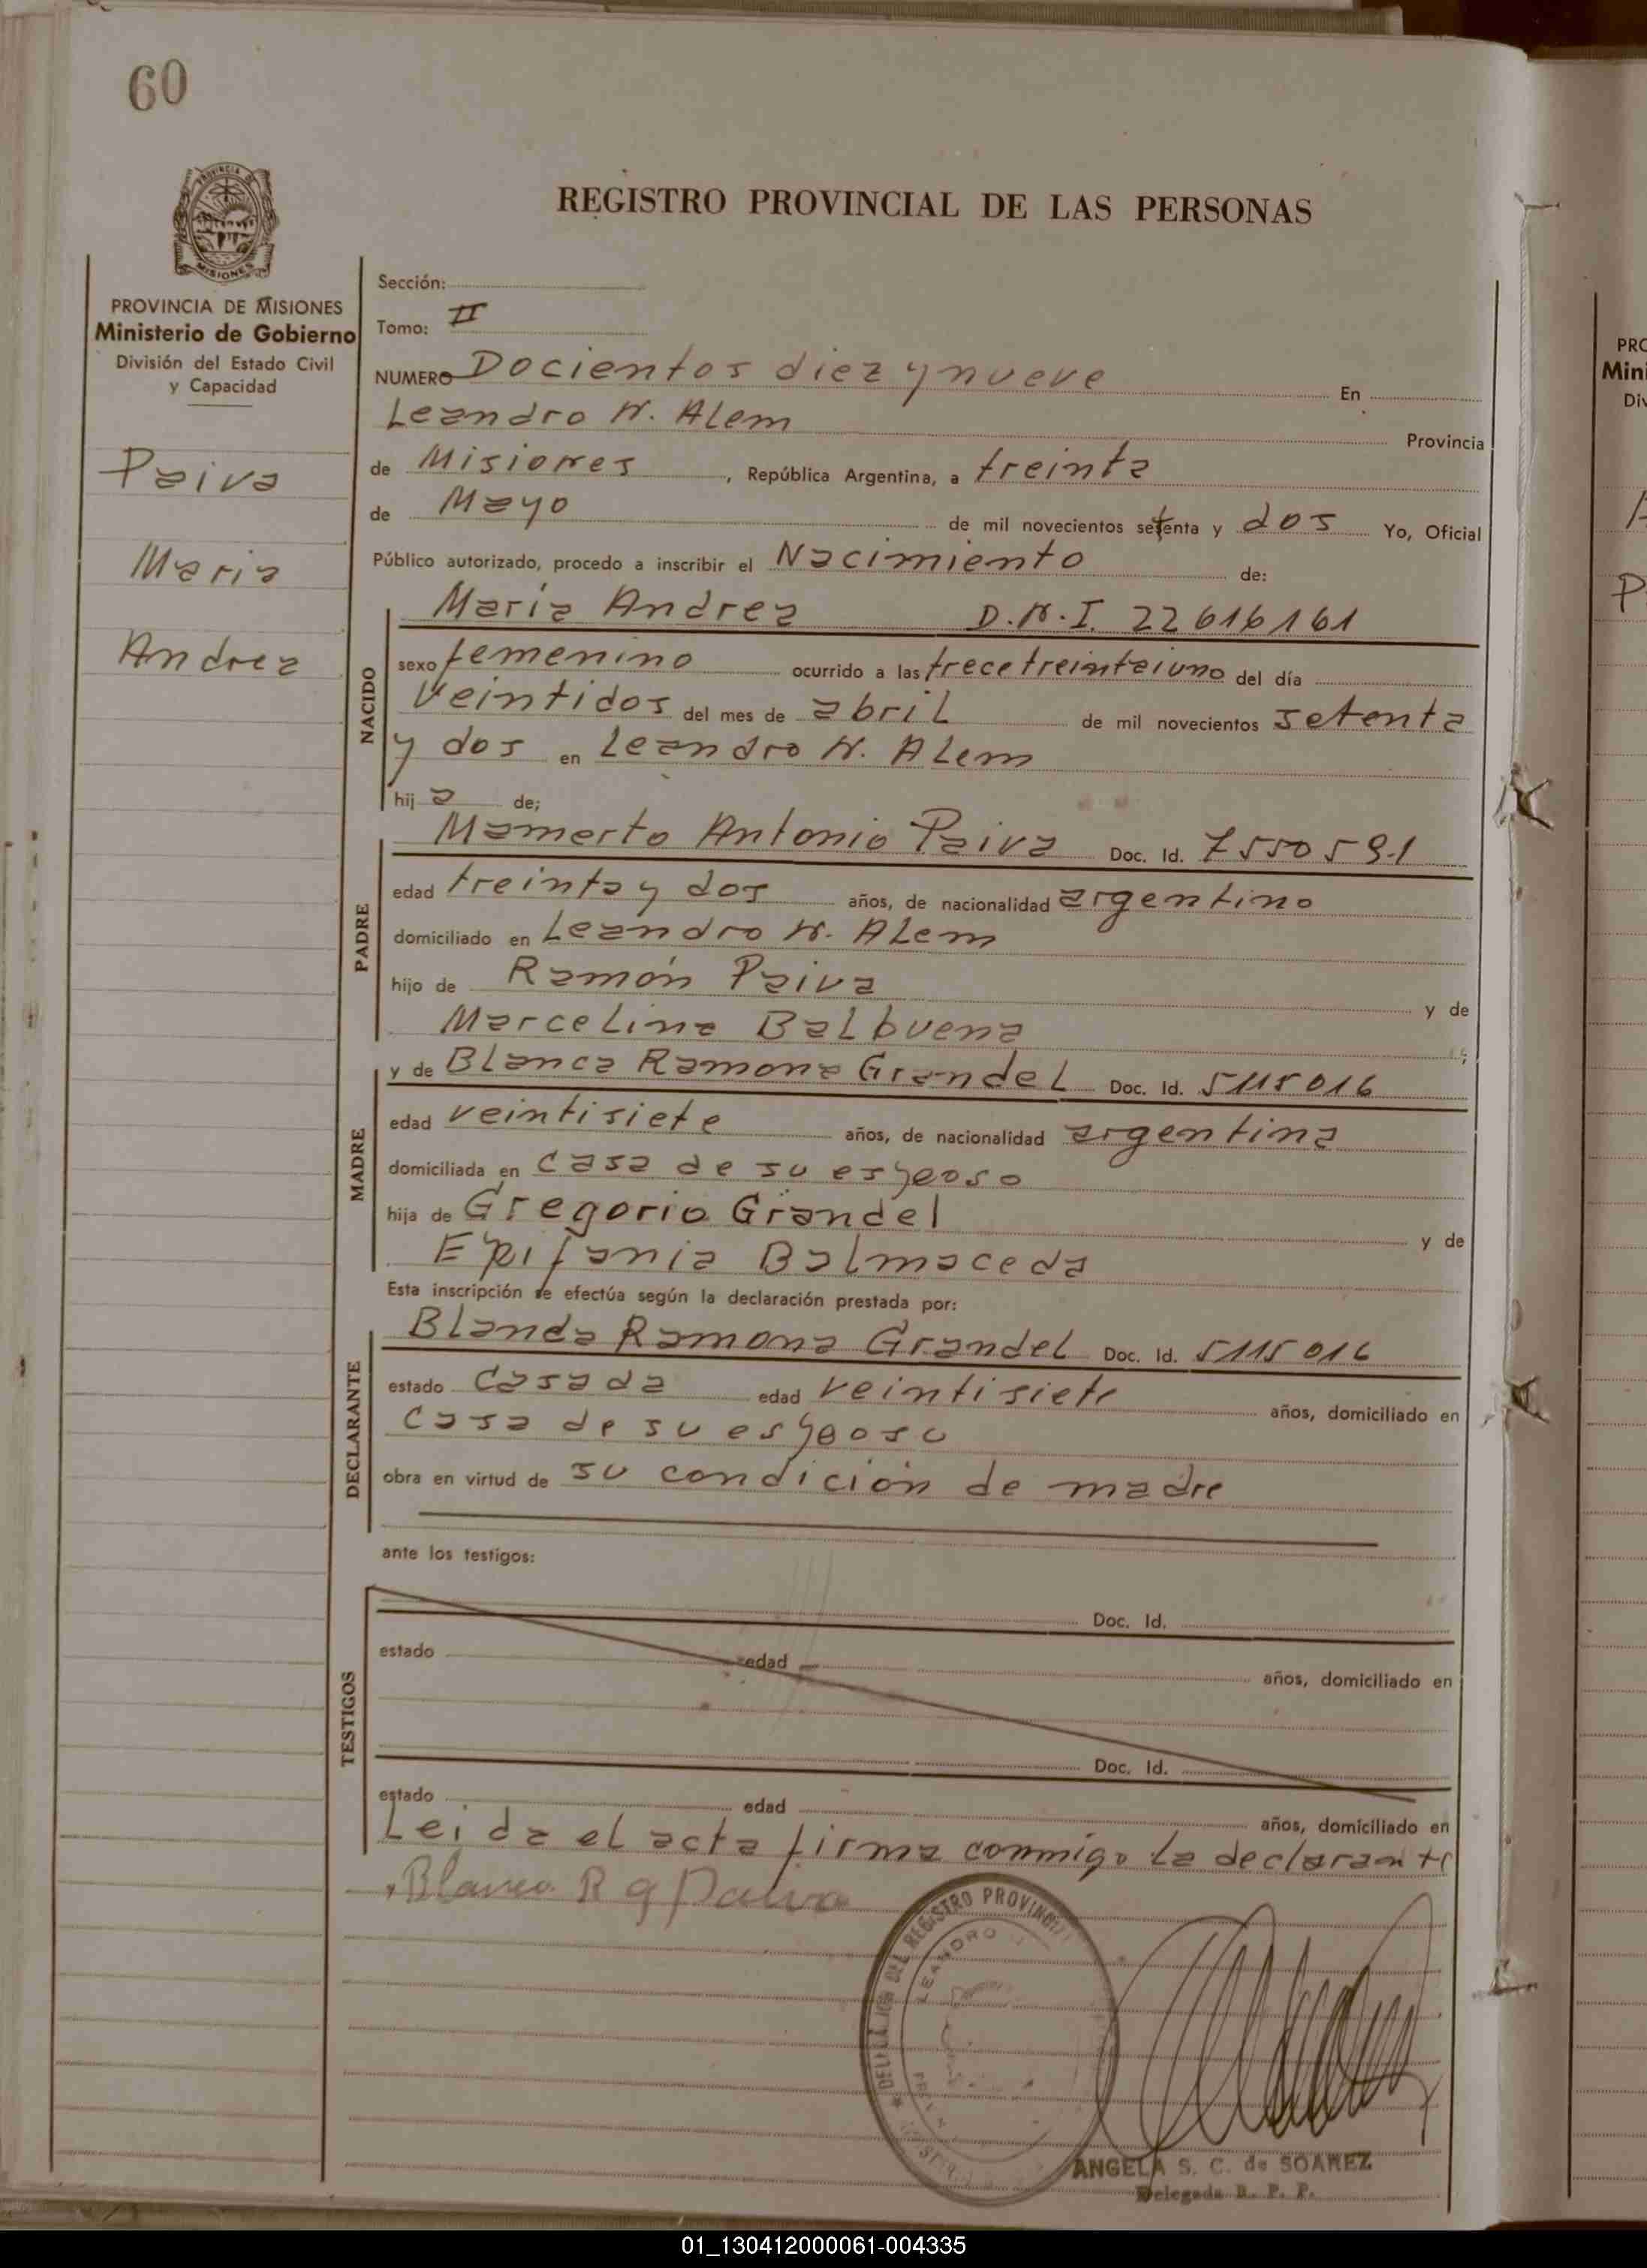 60
PROVINCIA DE
MISIONES
REGISTRO PROVINCIAL DE LAS PERSONAS
PROVINCIA DE MISIONES
Ministerio de Gobierno
División del Estado Civil
y Capacidad
Paiva
Maria
Andrea
Sección:
Tomo: II
NUMERO Docientos diez y nueve En
Leandro N. Alem Provincia
de Misiones, República Argentina, a treinta
de Mayo de mil novecientos setenta y dos Yo, Oficial
Público autorizado, procedo a inscribir el Nacimiento de:
María Andrea D.N.I. 22616161
NACIDO
sexo femenino ocurrido a las trece treintaiuno del día
veintidos del mes de abril de mil novecientos setenta
y dos en Leandro N. Alem
hija de;
Mamerto Antonio Paiva Doc. Id. 7550591
PADRE
edad treinta y dos años, de nacionalidad argentino
domiciliado en Leandro N. Alem
hijo de Ramón Paiva y de
Marcelina Balbuena
y de Blanca Ramona Grandel Doc. Id. 5115016
MADRE
edad veintisiete años, de nacionalidad argentina
domiciliada en casa de su esposo
hija de Gregorio Grandel y de
Epifania Balmaceda
Esta inscripción se efectúa según la declaración prestada por:
Blanda Ramona Grandel Doc. Id. 5115016
DECLARANTE
estado casada edad veintisiete años, domiciliado en
casa de su esposo
obra en virtud de su condición de madre
ante los testigos:
Doc. Id.
TESTIGOS
estado edad años, domiciliado en
Doc. Id.
estado edad años, domiciliado en
Leida el acta firma conmigo la declarante
Blanca R g Paiva
DEL REGISTRO PROVINCIAL
LEANDRO
ANGELA S. C. de SOAREZ
Delegada R. P. P.
PRO
Mini
Div
P
01_130412000061-004335